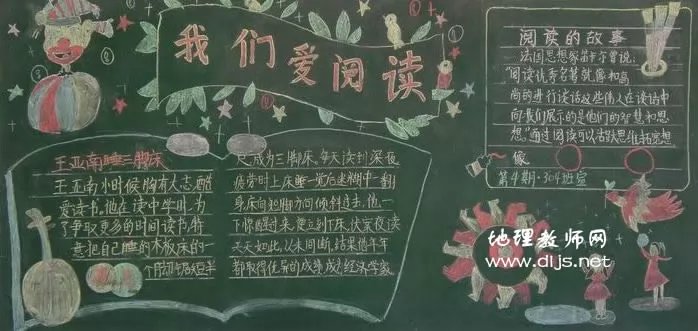 我们爱阅读
王亚南睡三脚床
王亚南小时候胸有大志酷
爱读书。他在读中学时,为
了争取更多的时间读书,特
意把自己睡的木板床的一
个脚锯短半
尺,成为三脚床。每天读到深夜
疲劳时上床睡一觉后迷糊中一翻
身床向短脚方向倾斜过去,他一
下惊醒过来,便立刻下床,伏案夜读
天天如此,从未间断,结果他年年
都取得优异的成绩,成为经济学家
阅读的故事
法国思想家笛卡尔曾说:
“阅读优秀名著就像和高
尚的进行谈话,这些伟人在谈话中
向我们展示的是他们的智慧和思
想”通过阅读可以活跃思维
第4期·304班宣
地理教师网
www.dljs.net